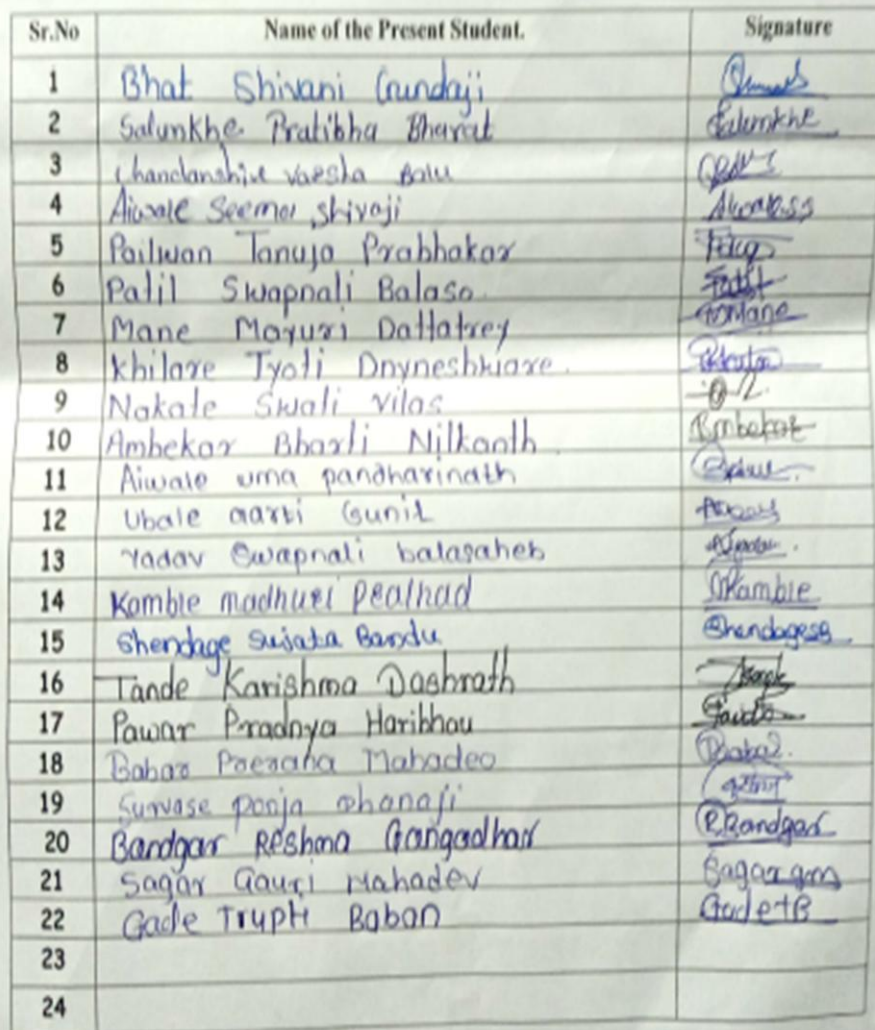 Sr.No Name of the Present Student. Signature
1 Bhat Shivani Gundaji
2 Salunkhe Pratibha Bharat Salunkhe
3 Chandanshive Varsha Balu
4 Aiwale Seema Shivaji Aiwaless
5 Pailwan Tanuja Prabhakar
6 Patil Swapnali Balaso
7 Mane Mayuri Dattatrey Mane
8 Khilare Jyoti Dnyneshware
9 Nakate Swali Vilas
10 Ambekar Bharti Nilkanth Ambekar
11 Aiwale uma pandharinath
12 Ubale aarti Sunil
13 Yadav Swapnali balasaheb
14 Kamble madhuri pralhad Kamble
15 Shendage Sujata Bandu ShendageSB
16 Tande Karishma Dashrath
17 Pawar Pradnya Haribhau
18 Babar Prerana Mahadeo Babar
19 Survase pooja dhanaji
20 Bandgar Reshma Gangadhar R.Bandgar
21 Sagar Gauri Mahadev Sagar gm
22 Gade Trupti Baban GadetB
23
24